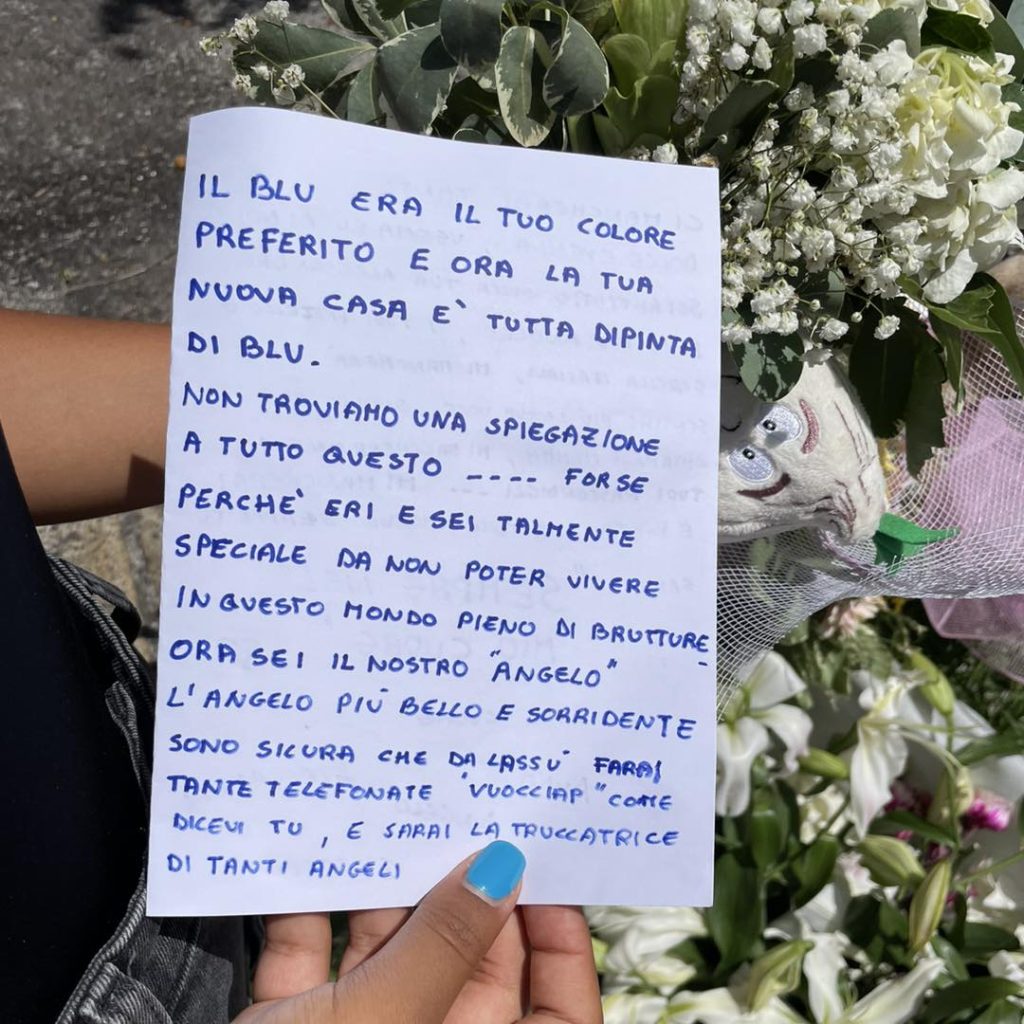 IL BLU ERA IL TUO COLORE
PREFERITO E ORA LA TUA
NUOVA CASA E' TUTTA DIPINTA
DI BLU.
NON TROVIAMO UNA SPIEGAZIONE
A TUTTO QUESTO ---- FORSE
PERCHE' ERI E SEI TALMENTE
SPECIALE DA NON POTER VIVERE
IN QUESTO MONDO PIENO DI BRUTTURE -
ORA SEI IL NOSTRO "ANGELO"
L'ANGELO PIÙ BELLO E SORRIDENTE
SONO SICURA CHE DA LASSU' FARAI
TANTE TELEFONATE "VUOCCIAP" COME
DICEVI TU, E SARAI LA TRUCCATRICE
DI TANTI ANGELI